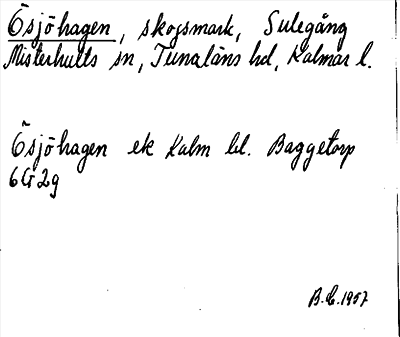 Ösjöhagen, skogsmark, Sulegång
Misterhults sn, Tunaläns hd, Kalmar l.
Ösjöhagen ek Kalm bl. Baggetorp
6G2g
B.E. 1957